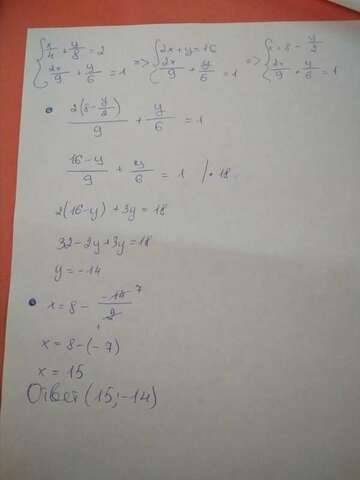 {x/4 + y/8 = 2 => {2x + y = 16 => {x = 8 - y/2
{2x/9 + y/6 = 1 {2x/9 + y/6 = 1 {2x/9 + y/6 = 1
• 2(8 - y/2)/9 + y/6 = 1
16-y/9 + y/6 = 1 /•18
2(16-y) + 3y = 18
32-2y+3y=18
y=-14
• x = 8 - -14/2 7
x = 8-(-7)
x = 15
Ответ (15;-14)